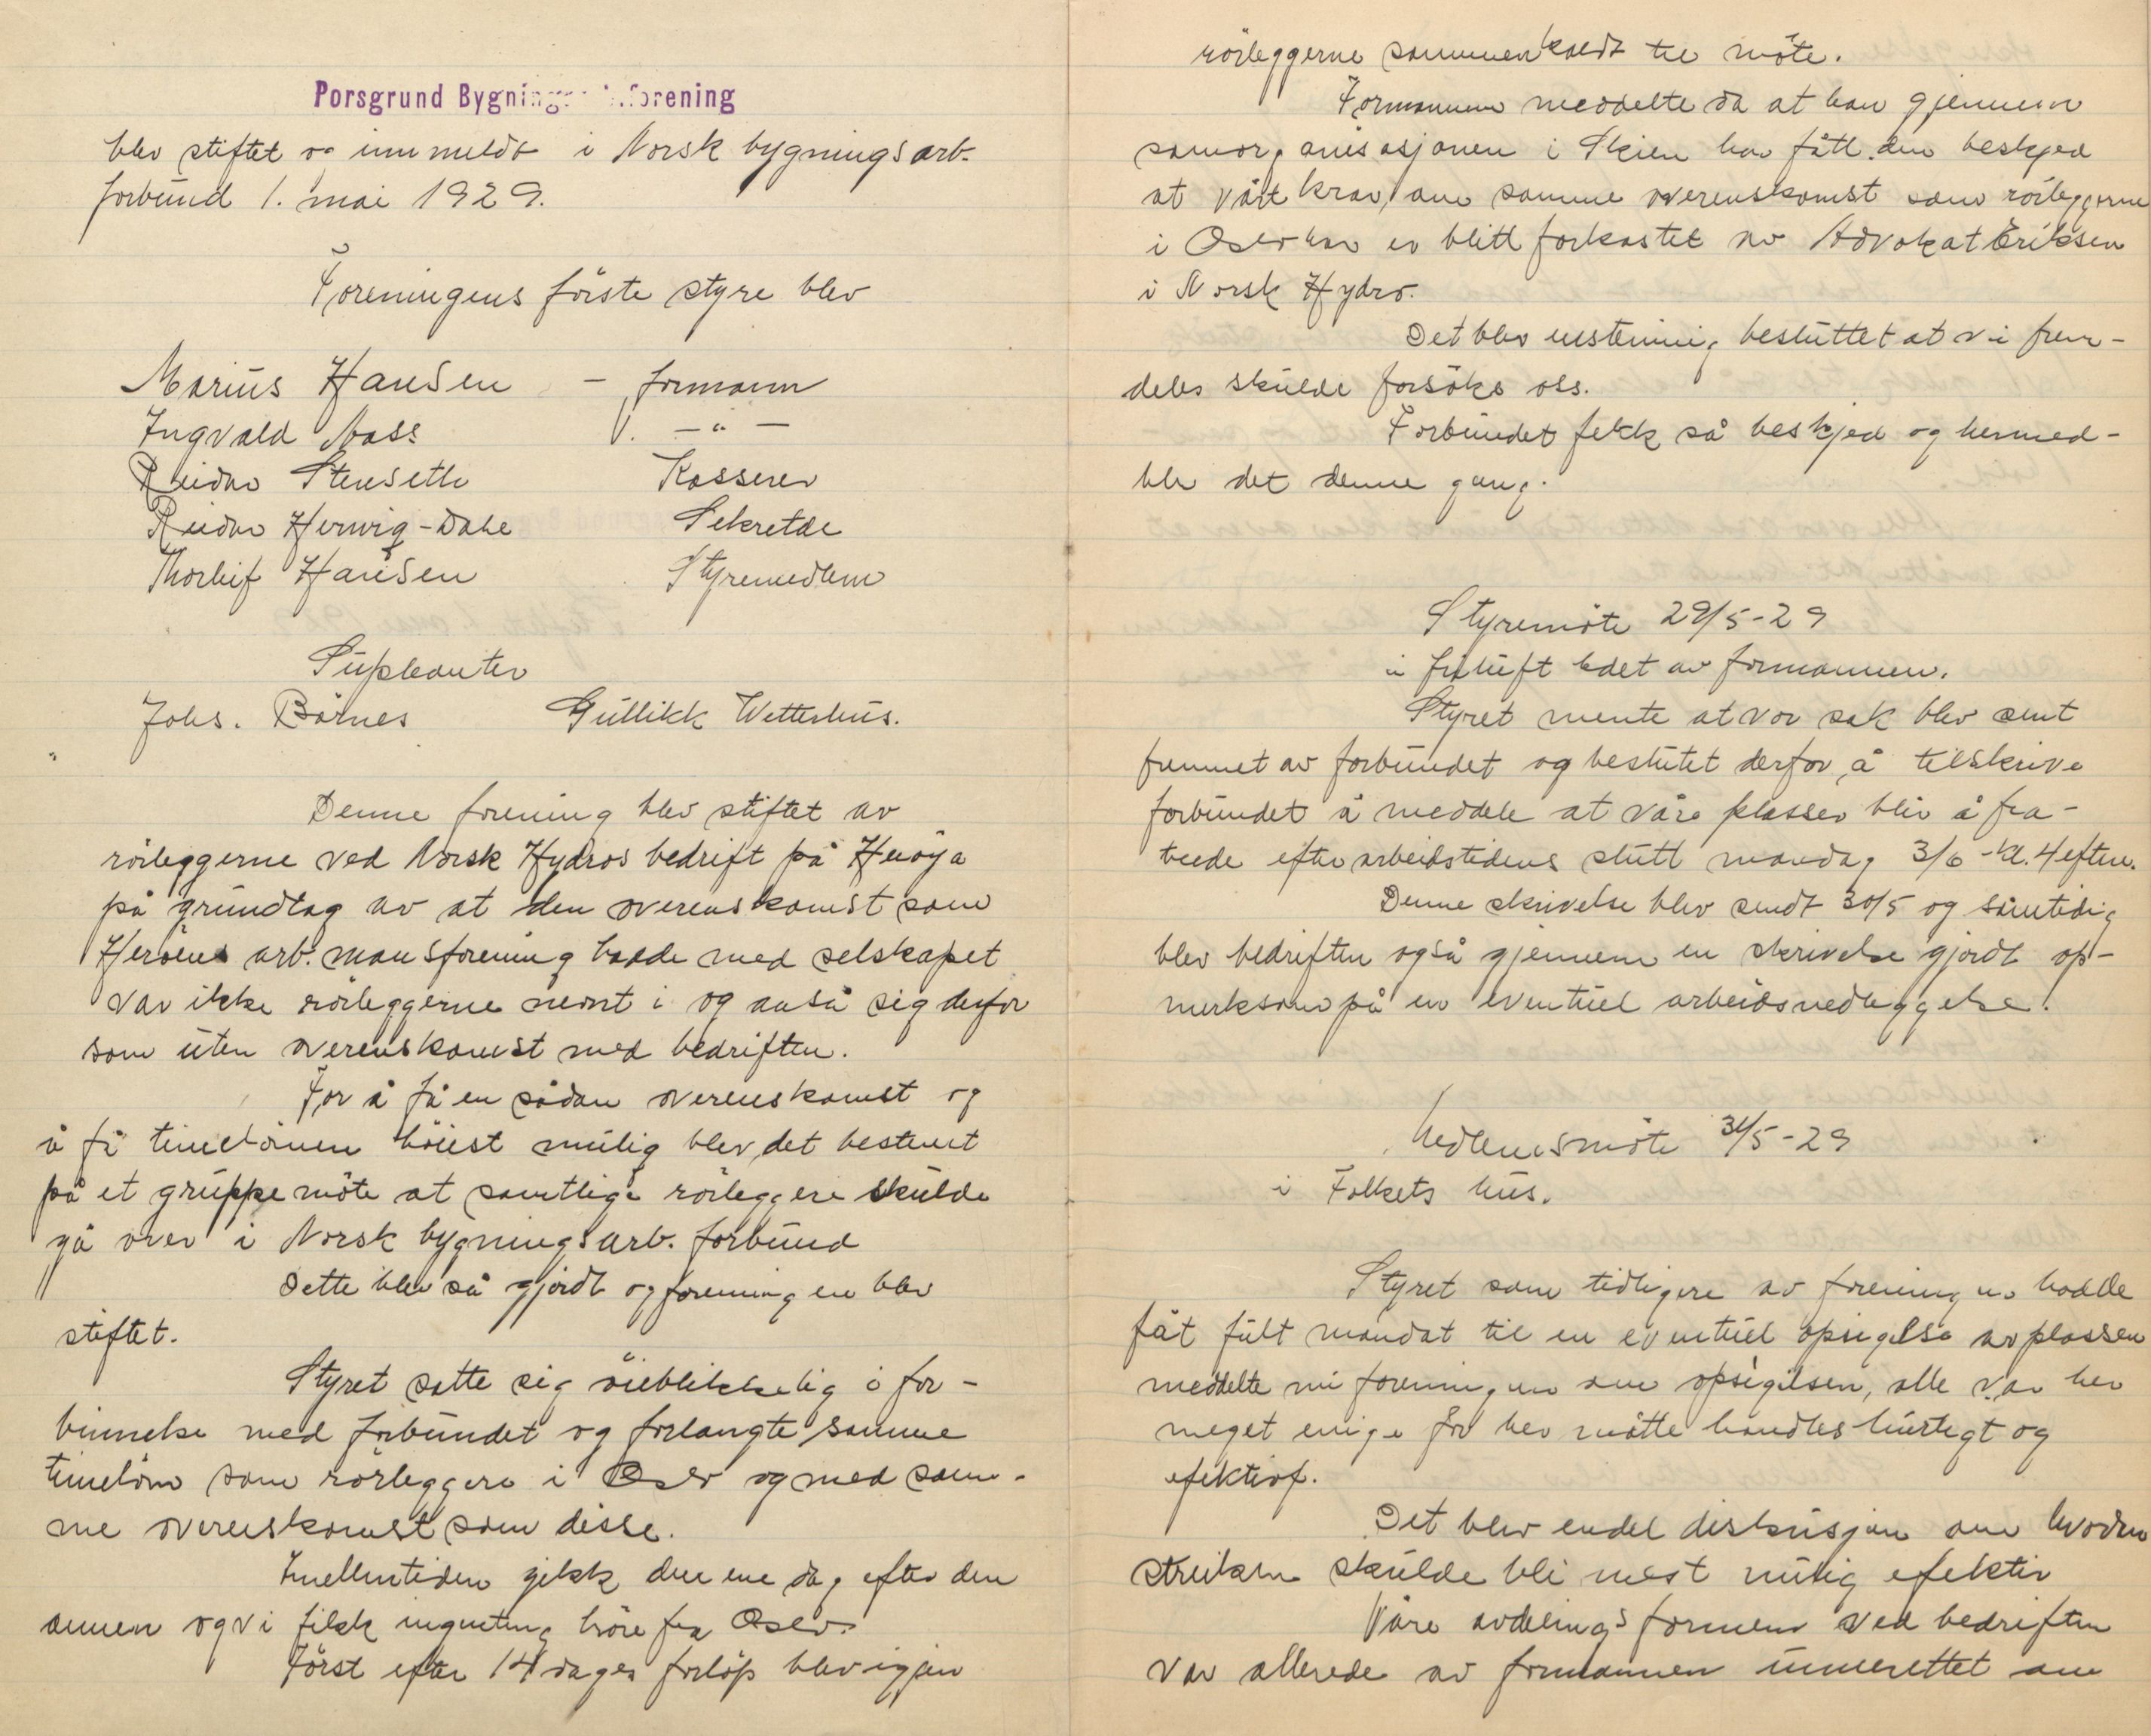 Porsgrund Bygnings forening
blev stiftet og innmeldt i Norsk bygningsarb.
forbund 1. mai 1929.
Foreningens förste styre blev
Marius Hansen - formann
Ingvald Moss V. -"-
Reidar Stenseth Kasserer
Reidar Herwig-Dahl Sekretær
Thorleif Hansen Styremedlem
Supleanter
Johs. Bårnes Gullikk Wetterhus.
Denne forening blev stiftet av
rörleggerne ved Norsk Hydros bedrift på Heröya
på grundlag av at den overenskomst som
Heröens arb.mansforening hadde med selskapet
var ikke rörleggerne nevnt i og anså sig derfor
som uten overenskomst med bedriften.
For å få en sådan overenskomst og
å få timelönnen höiest mulig blev det bestemt
på et gruppemöte at samtlige rörleggere skulde
gå over i Norsk bygningsarb. forbund
Dette blev så gjordt og foreningen blev
stiftet.
Styret satte sig öieblikkelig i for-
binnelse med forbundet og forlangte samme
timelönn som rörleggere i Oslo og med sam-
me overenskomst som disse.
Imellemtiden gikk den ene dag efter den
annen og vi fikk ingenting höre fra Oslo.
Först efter 14 dages forlöp blev igjen
rörleggerne sammenkaldt til möte.
Formannen meddelte da at han gjennem
samorganisasjonen i Skien har fått den beskjed
at vårt krav, om samme overenskomst som rörleggerne
i Oslo har er blitt forkastet av Advokat Eriksen
i Norsk Hydro.
Det blev enstemmig besluttet at vi frem-
deles skulde forsöke oss.
Forbundet fikk så beskjed og hermed-
blev det denne gang.
Styremöte 29/5-29
i friluft ledet av formannen.
Styret mente at vor sak blev sent
fremmet av forbundet og beslutet derfor å tilskrive
forbundet å meddele at våre plasser blir å fra-
trede efter arbeidstidens slutt mandag 3/6 - kl. 4 efterm.
Denne skrivelse blev sendt 30/5 og samtidig
blev bedriften også gjennem en skrivelse gjordt op-
merksom på en eventuel arbeidsnedleggelse.
Medlemsmöte 31/5-29
i Folkets hus.
Styret som tidligere av foreningen hadde
fåt fult mandat til en eventuel opsigelse av plassen
meddelte nu foreningen om opsigelsen, alle var her
meget enige for her måtte handles hurtigt og
efektivt.
Det blev endel diskusjon om hvordan
streiken skulde bli mest mulig efektiv
Våre avdelingsformenn ved bedriften
var allerede av formannen underettet om